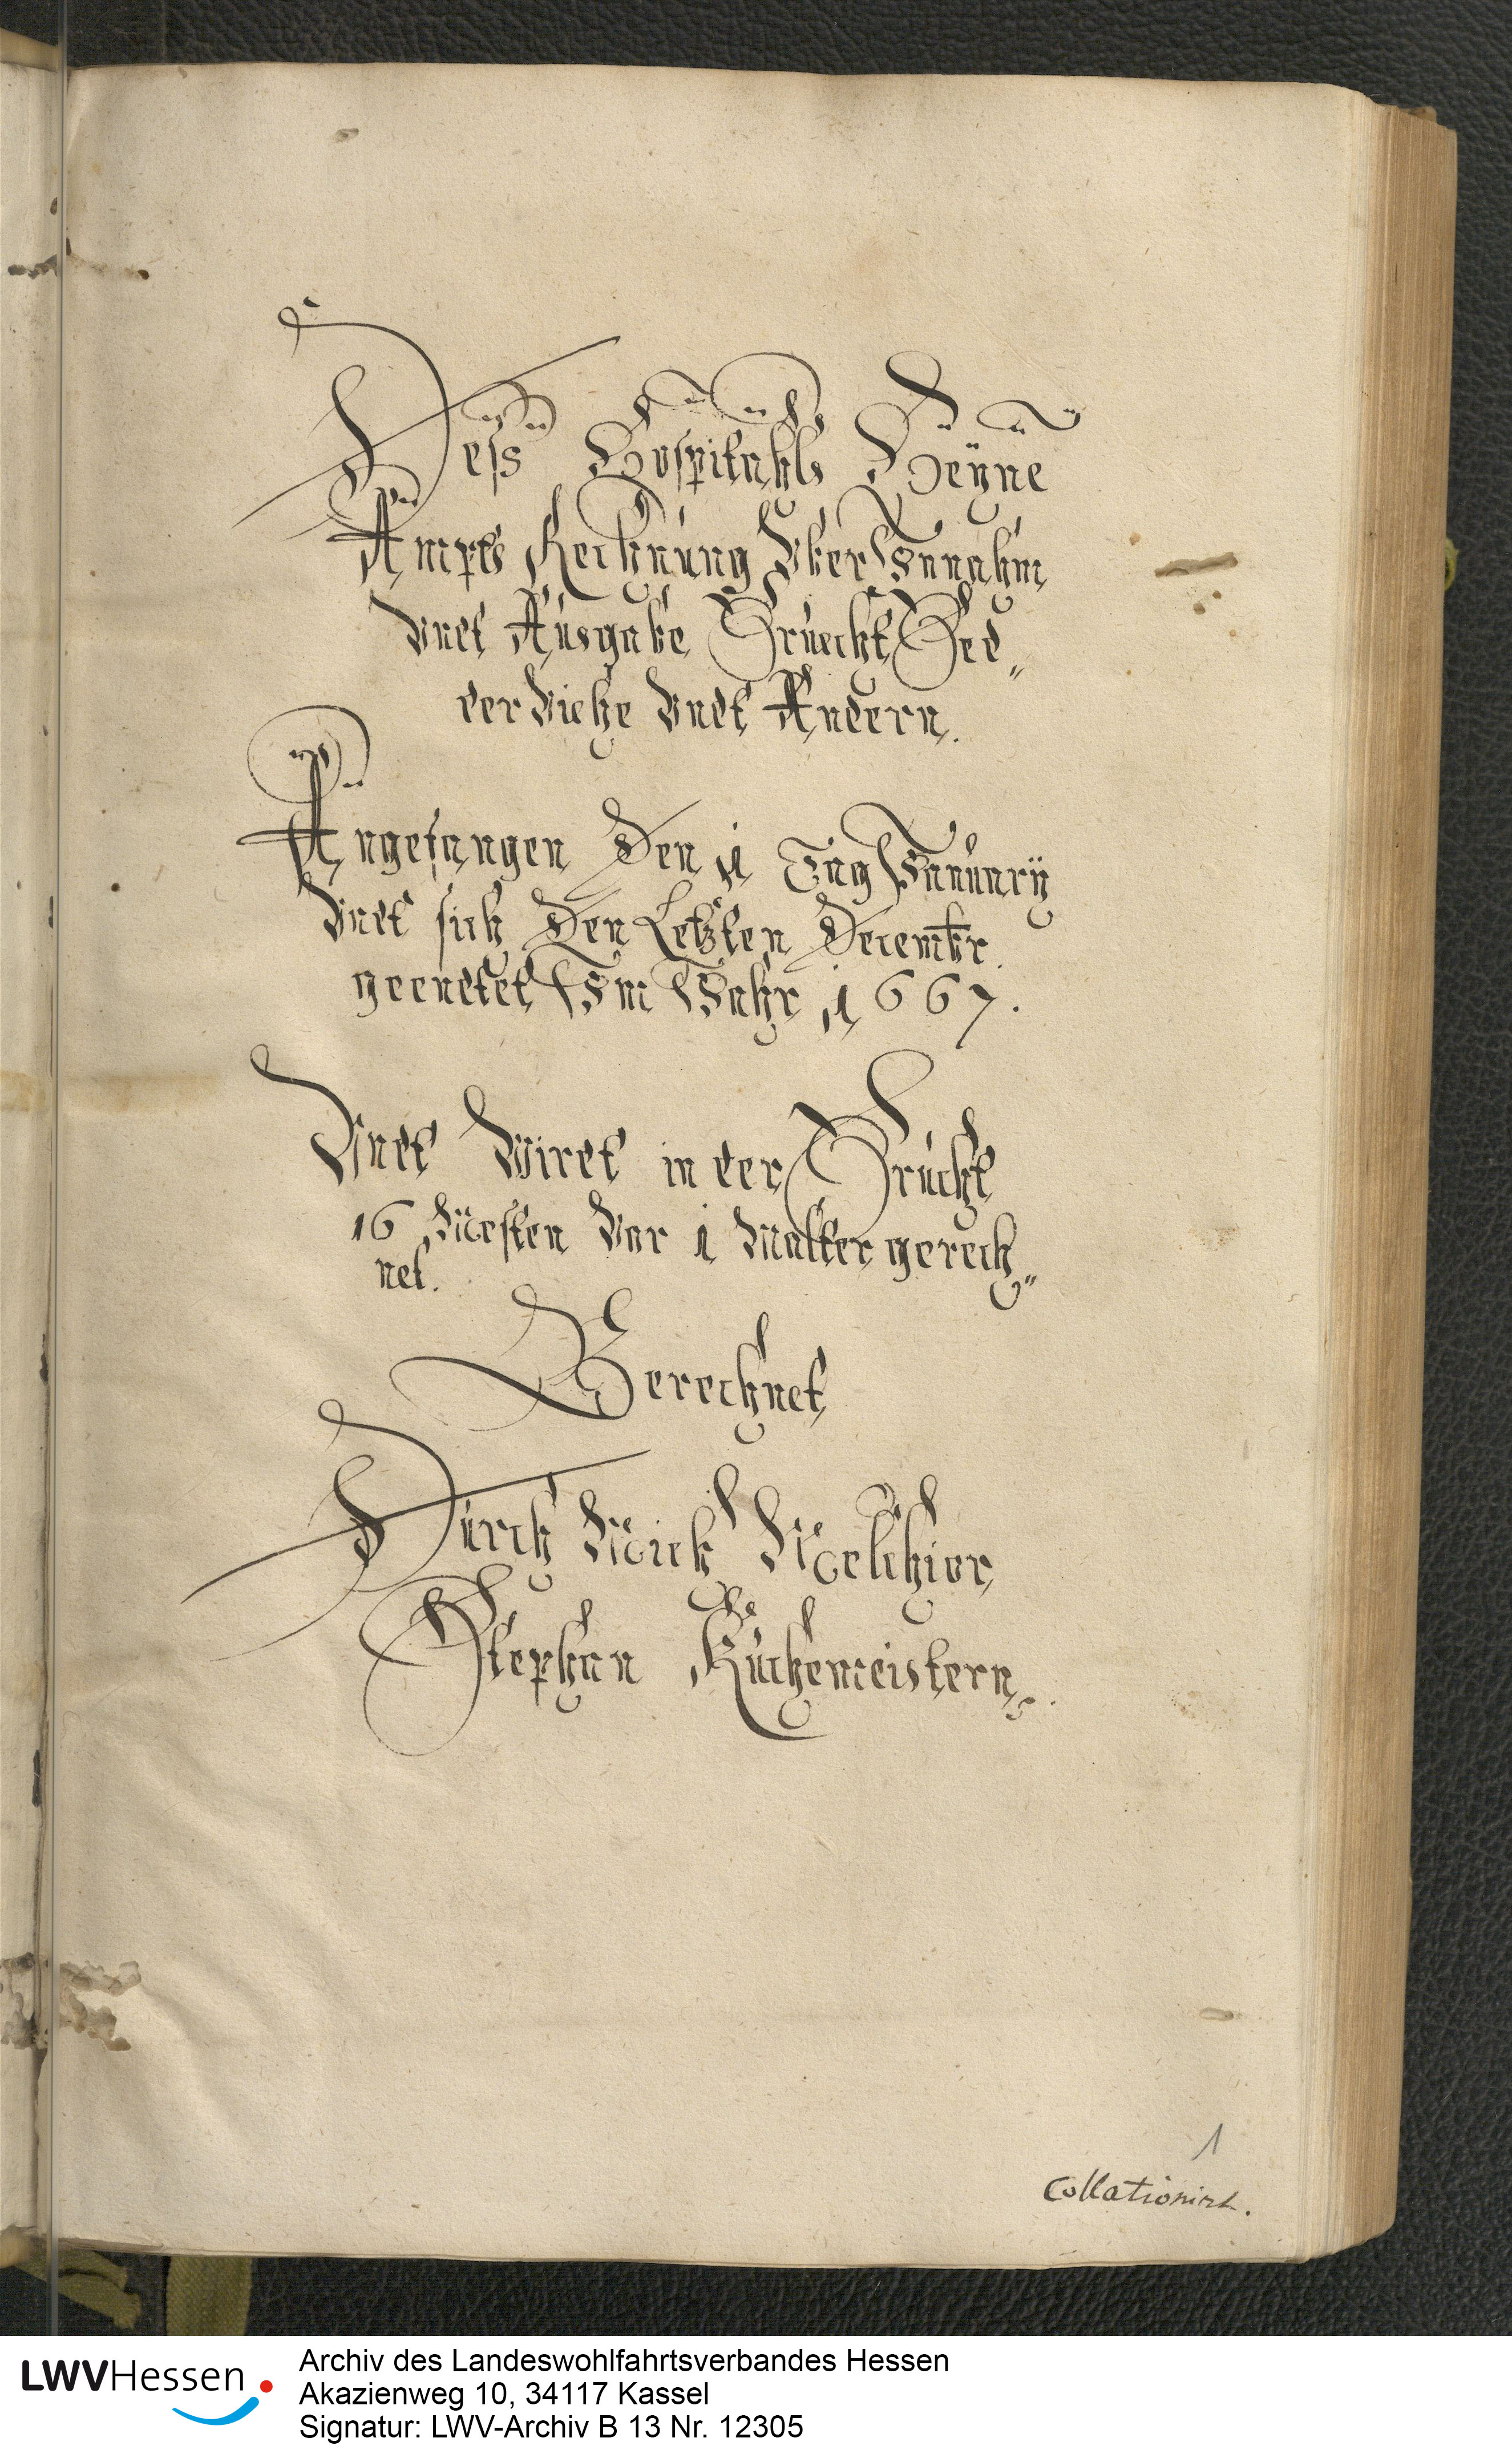 Deß Hospitahls Heÿne
Ampts Rechnung Vber Innahm
Vndt Ausgabe Fruecht, Fed„
der Viehe Vndt Andern.
Angefangen Den 1 Tag Januarÿ
Vndt sich Den Letzten Decembr.
geendtet Im Jahr 1667.
Vndt Wirdt in der Frucht
16 Mesten Vor 1 Malter gerech„
net.
Berechnet
Durch Mich Melchior
Stephan Küchemeistern.
1
Collationirt.
LWVHessen
Archiv des Landeswohlfahrtsverbandes Hessen
Akazienweg 10, 34117 Kassel
Signatur: LWV-Archiv B 13 Nr. 12305